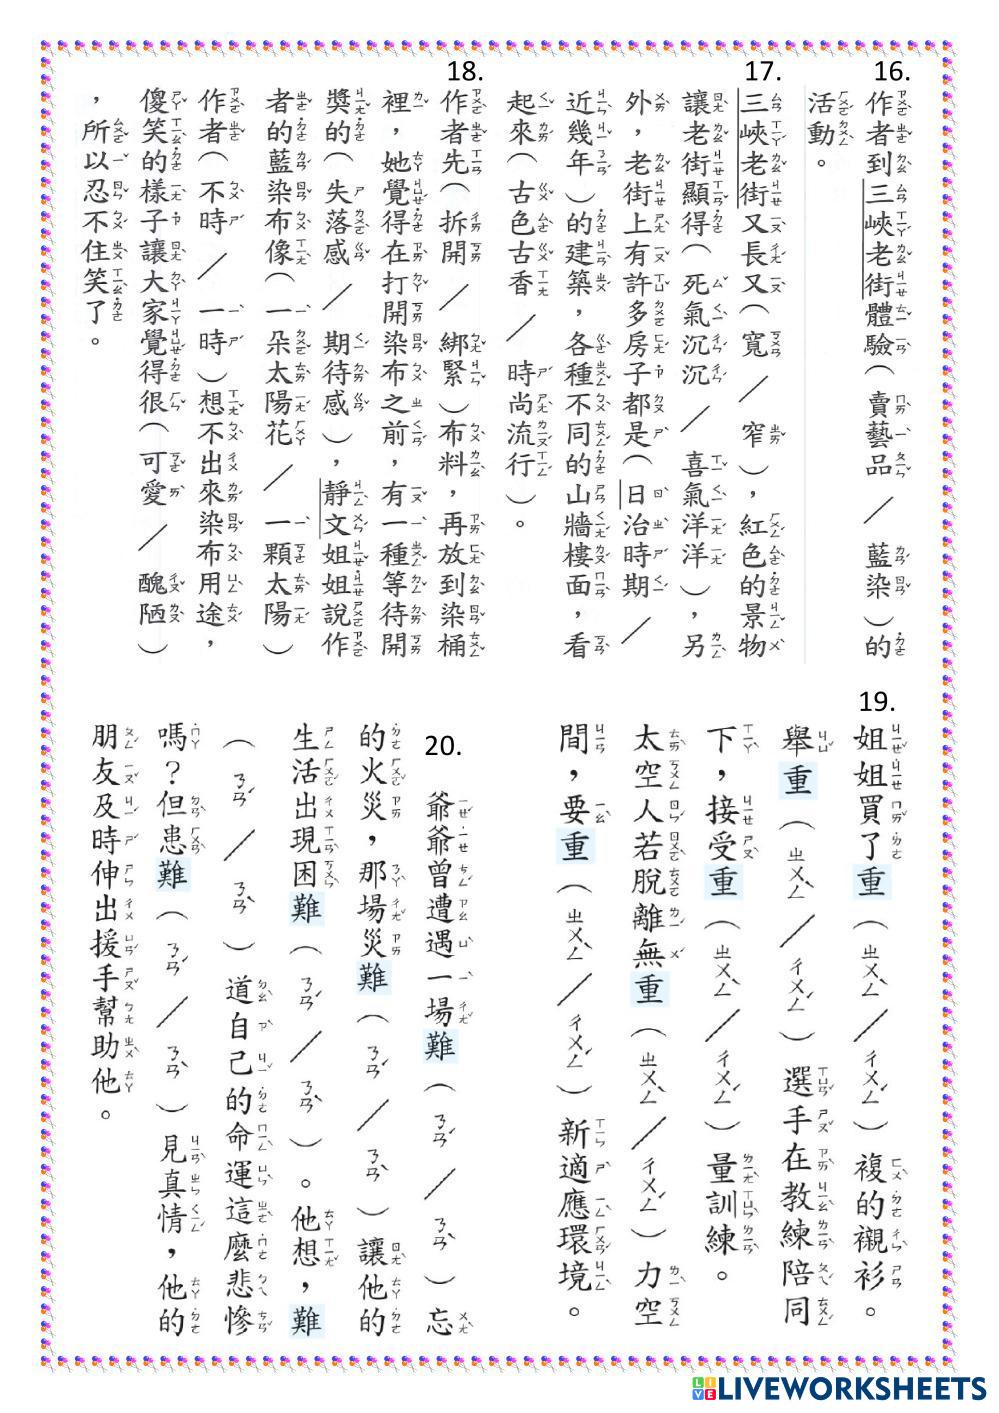 16.
作者到三峽老街體驗(賣藝品/藍染)的
活動。
17.
三峽老街又長又(寬/窄),紅色的景物
讓老街顯得(死氣沉沉/喜氣洋洋),另
外,老街上有許多房子都是(日治時期/
近幾年)的建築,各種不同的山牆樓面,看
起來(古色古香/時尚流行)。
18.
作者先(拆開/綁緊)布料,再放到染桶
裡,她覺得在打開染布之前,有一種等待開
獎的(失落感/期待感),靜文姐姐說作
者的藍染布像(一朵太陽花/一顆太陽)
作者(不時/一時)想不出來染布用途,
傻笑的樣子讓大家覺得很(可愛/醜陋)
,所以忍不住笑了。
19.
姐姐買了重(ㄓㄨㄥˋ/ㄔㄨㄥˊ)複的襯衫。
舉重(ㄓㄨㄥˋ/ㄔㄨㄥˊ)選手在教練陪同
下,接受重(ㄓㄨㄥˋ/ㄔㄨㄥˊ)量訓練。
太空人若脫離無重(ㄓㄨㄥˋ/ㄔㄨㄥˊ)力空
間,要重(ㄓㄨㄥˋ/ㄔㄨㄥˊ)新適應環境。
20.
爺爺曾遭遇一場難(ㄋㄢˊ/ㄋㄢˋ)忘
的火災,那場災難(ㄋㄢˊ/ㄋㄢˋ)讓他的
生活出現困難(ㄋㄢˊ/ㄋㄢˋ)。他想,難
(ㄋㄢˊ/ㄋㄢˋ)道自己的命運這麼悲慘
嗎?但患難(ㄋㄢˊ/ㄋㄢˋ)見真情,他的
朋友及時伸出援手幫助他。
LIVEWORKSHEETS